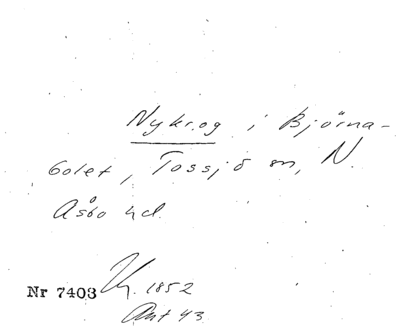 Nykrog i Björna-
bolet, Tossjö sn, N.
Åsbo hd.
Nr 7403 1852
Ant 43